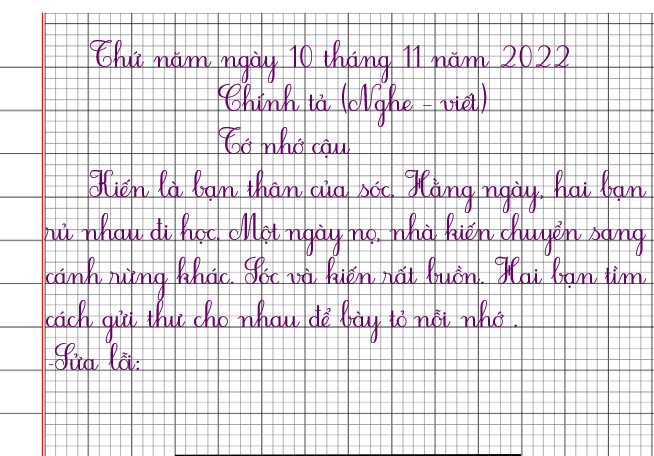 Thứ năm ngày 10 tháng 11 năm 2022
Chính tả (Nghe - viết)
Tớ nhớ cậu
Kiến là bạn thân của sóc. Hằng ngày, hai bạn
rủ nhau đi học. Một ngày nọ, nhà kiến chuyển sang
cánh rừng khác. Sóc và kiến rất buồn. Hai bạn tìm
cách gửi thư cho nhau để bày tỏ nỗi nhớ .
-Sửa lỗi: